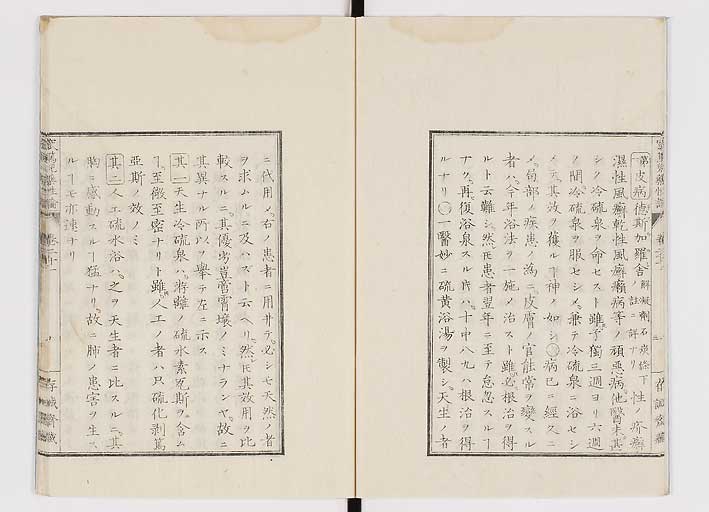 第一皮病徳斯加羅舎解凝劑石炭條下ノ註ニ詳ナリ性ノ疥癬
濕性風癬乾性風癬癩病等ノ頑悪病他醫未其
シク冷硫泉ヲ命セスト雖予獨三週ヨリ六週
ノ間冷硫泉ヲ服セシメ兼テ冷硫泉ニ浴セシ
メ其效ヲ獲ルヿ神ノ如シ〇病已ニ經久ニ
ノ局部ノ疾患ノ為ニ皮膚ノ官能常ヲ變スル
者ハ今年浴法ヲ一施ノ治スト雖必根治ヲ得
ルト云難シ然𪜈患者翌年ニ至テ怠忽スルヿ
ナク再復浴泉スル𪜈ハ十中八九ハ根治ヲ得
ルナリ〇一醫妙ニ硫黄浴湯ヲ製シ天生ノ者
ニ代用ノ右ノ患者ニ用井テ必シモ天然ノ者
ヲ求ムルニ及ハズト云ヘリ然𪜈其效用ヲ比
較スルニ其優劣豈霄壌ノミナランヤ故ニ
其異ナル所以ヲ擧テ左ニ示ス
其一天生冷硫泉ハ將離硫水素瓦斯ヲ含ム
ヿ至微至密ナリト雖人工ノ者ハ只硫化剥篤
亞斯ノ效ノミ
其二人工硫水浴ハ之ヲ天生者ニ比スルニ其
胸ニ感動スルヿ猛ナリ故ニ肺ノ患害ヲ生ス
ルヿモ亦速ナリ